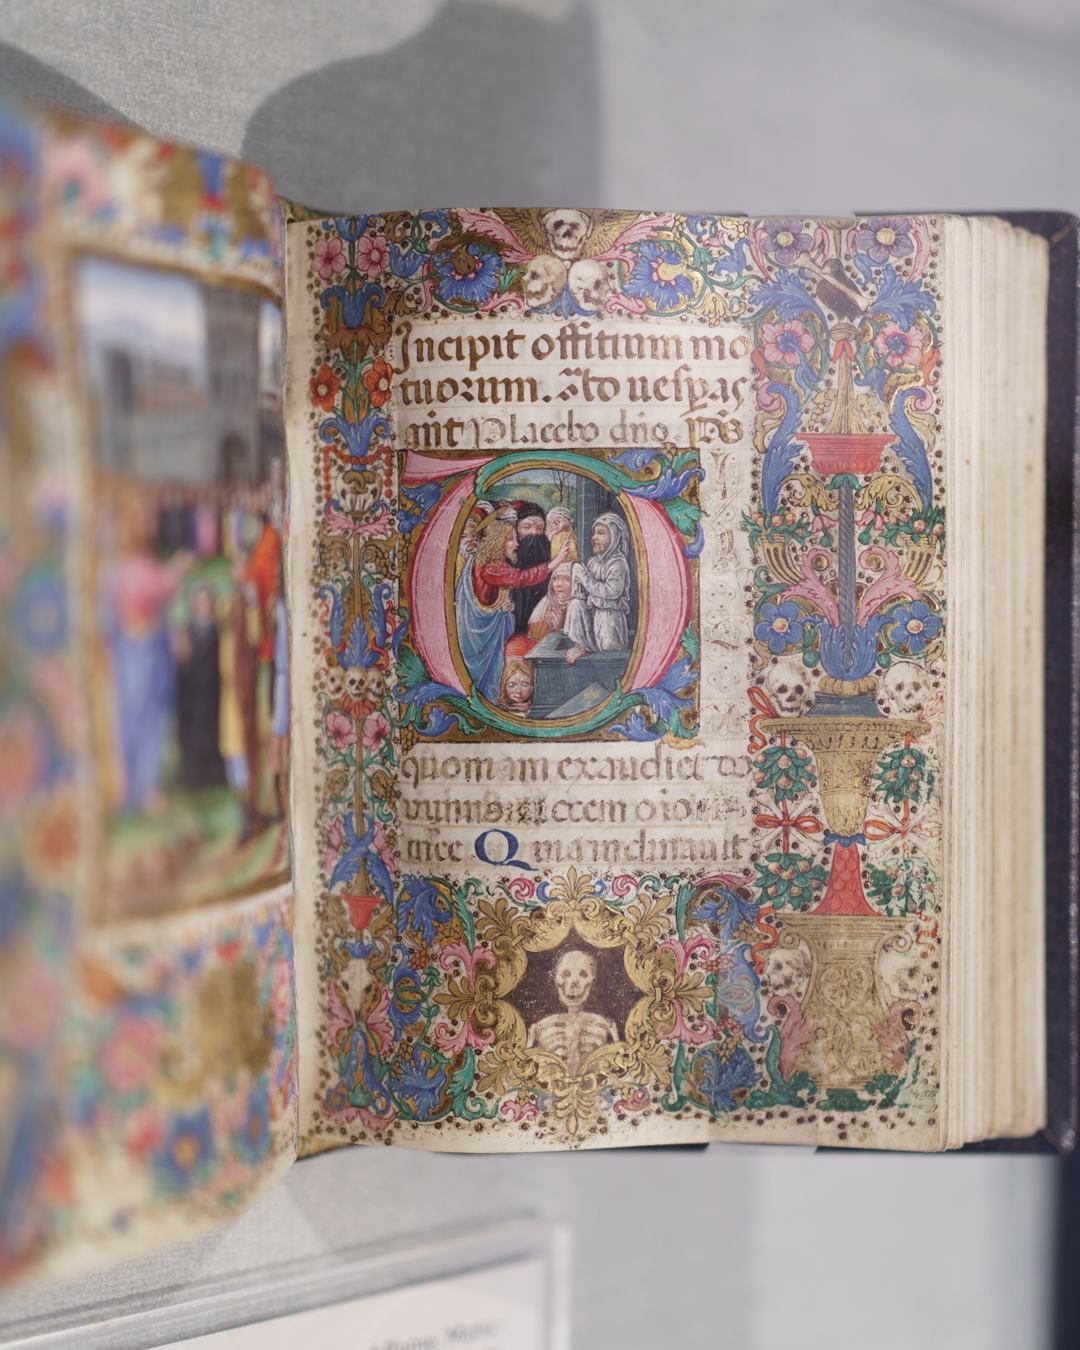 Incipit offitium mo
tuorum. Ad uesp̱as
añt Placebo dño. Ps̄
D
quoniam exaudiet do
minus uocem orõis
mee Quia inclinauit